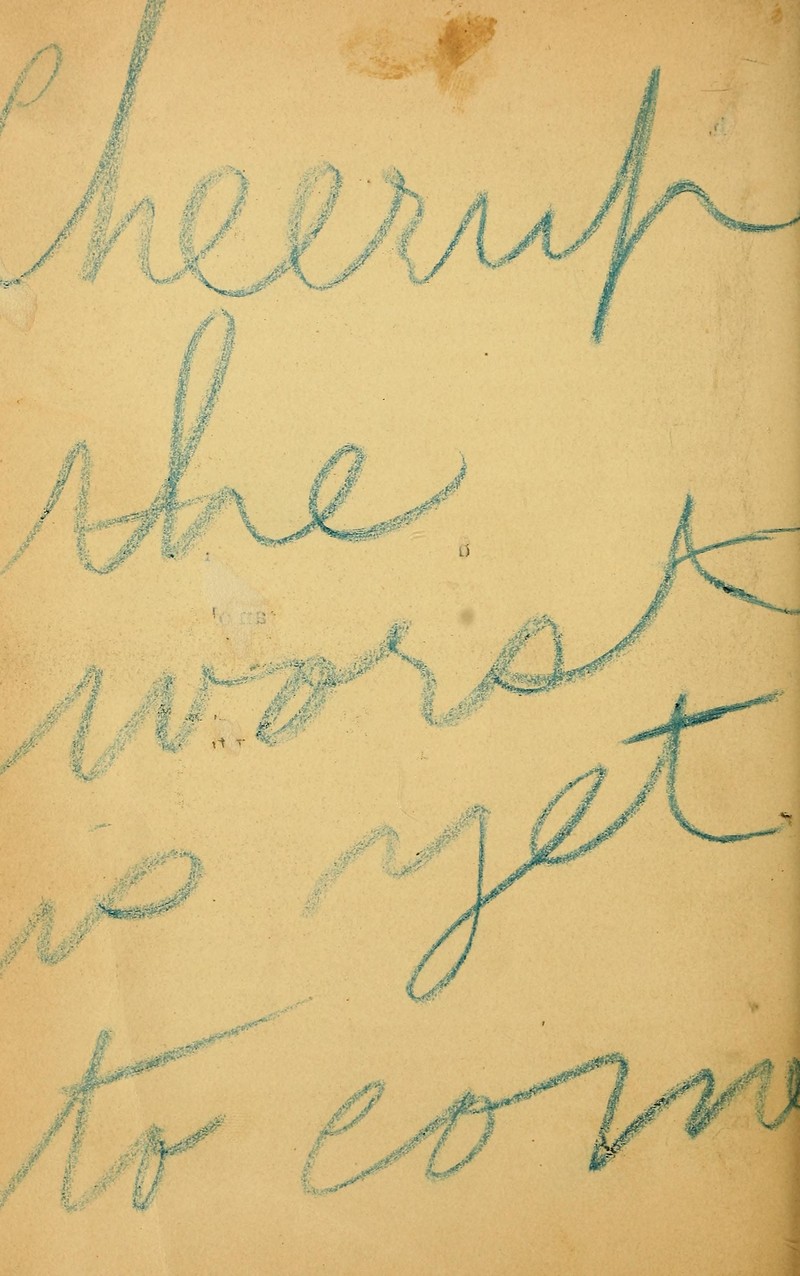 Cheerup
the
worst
is yet
to come